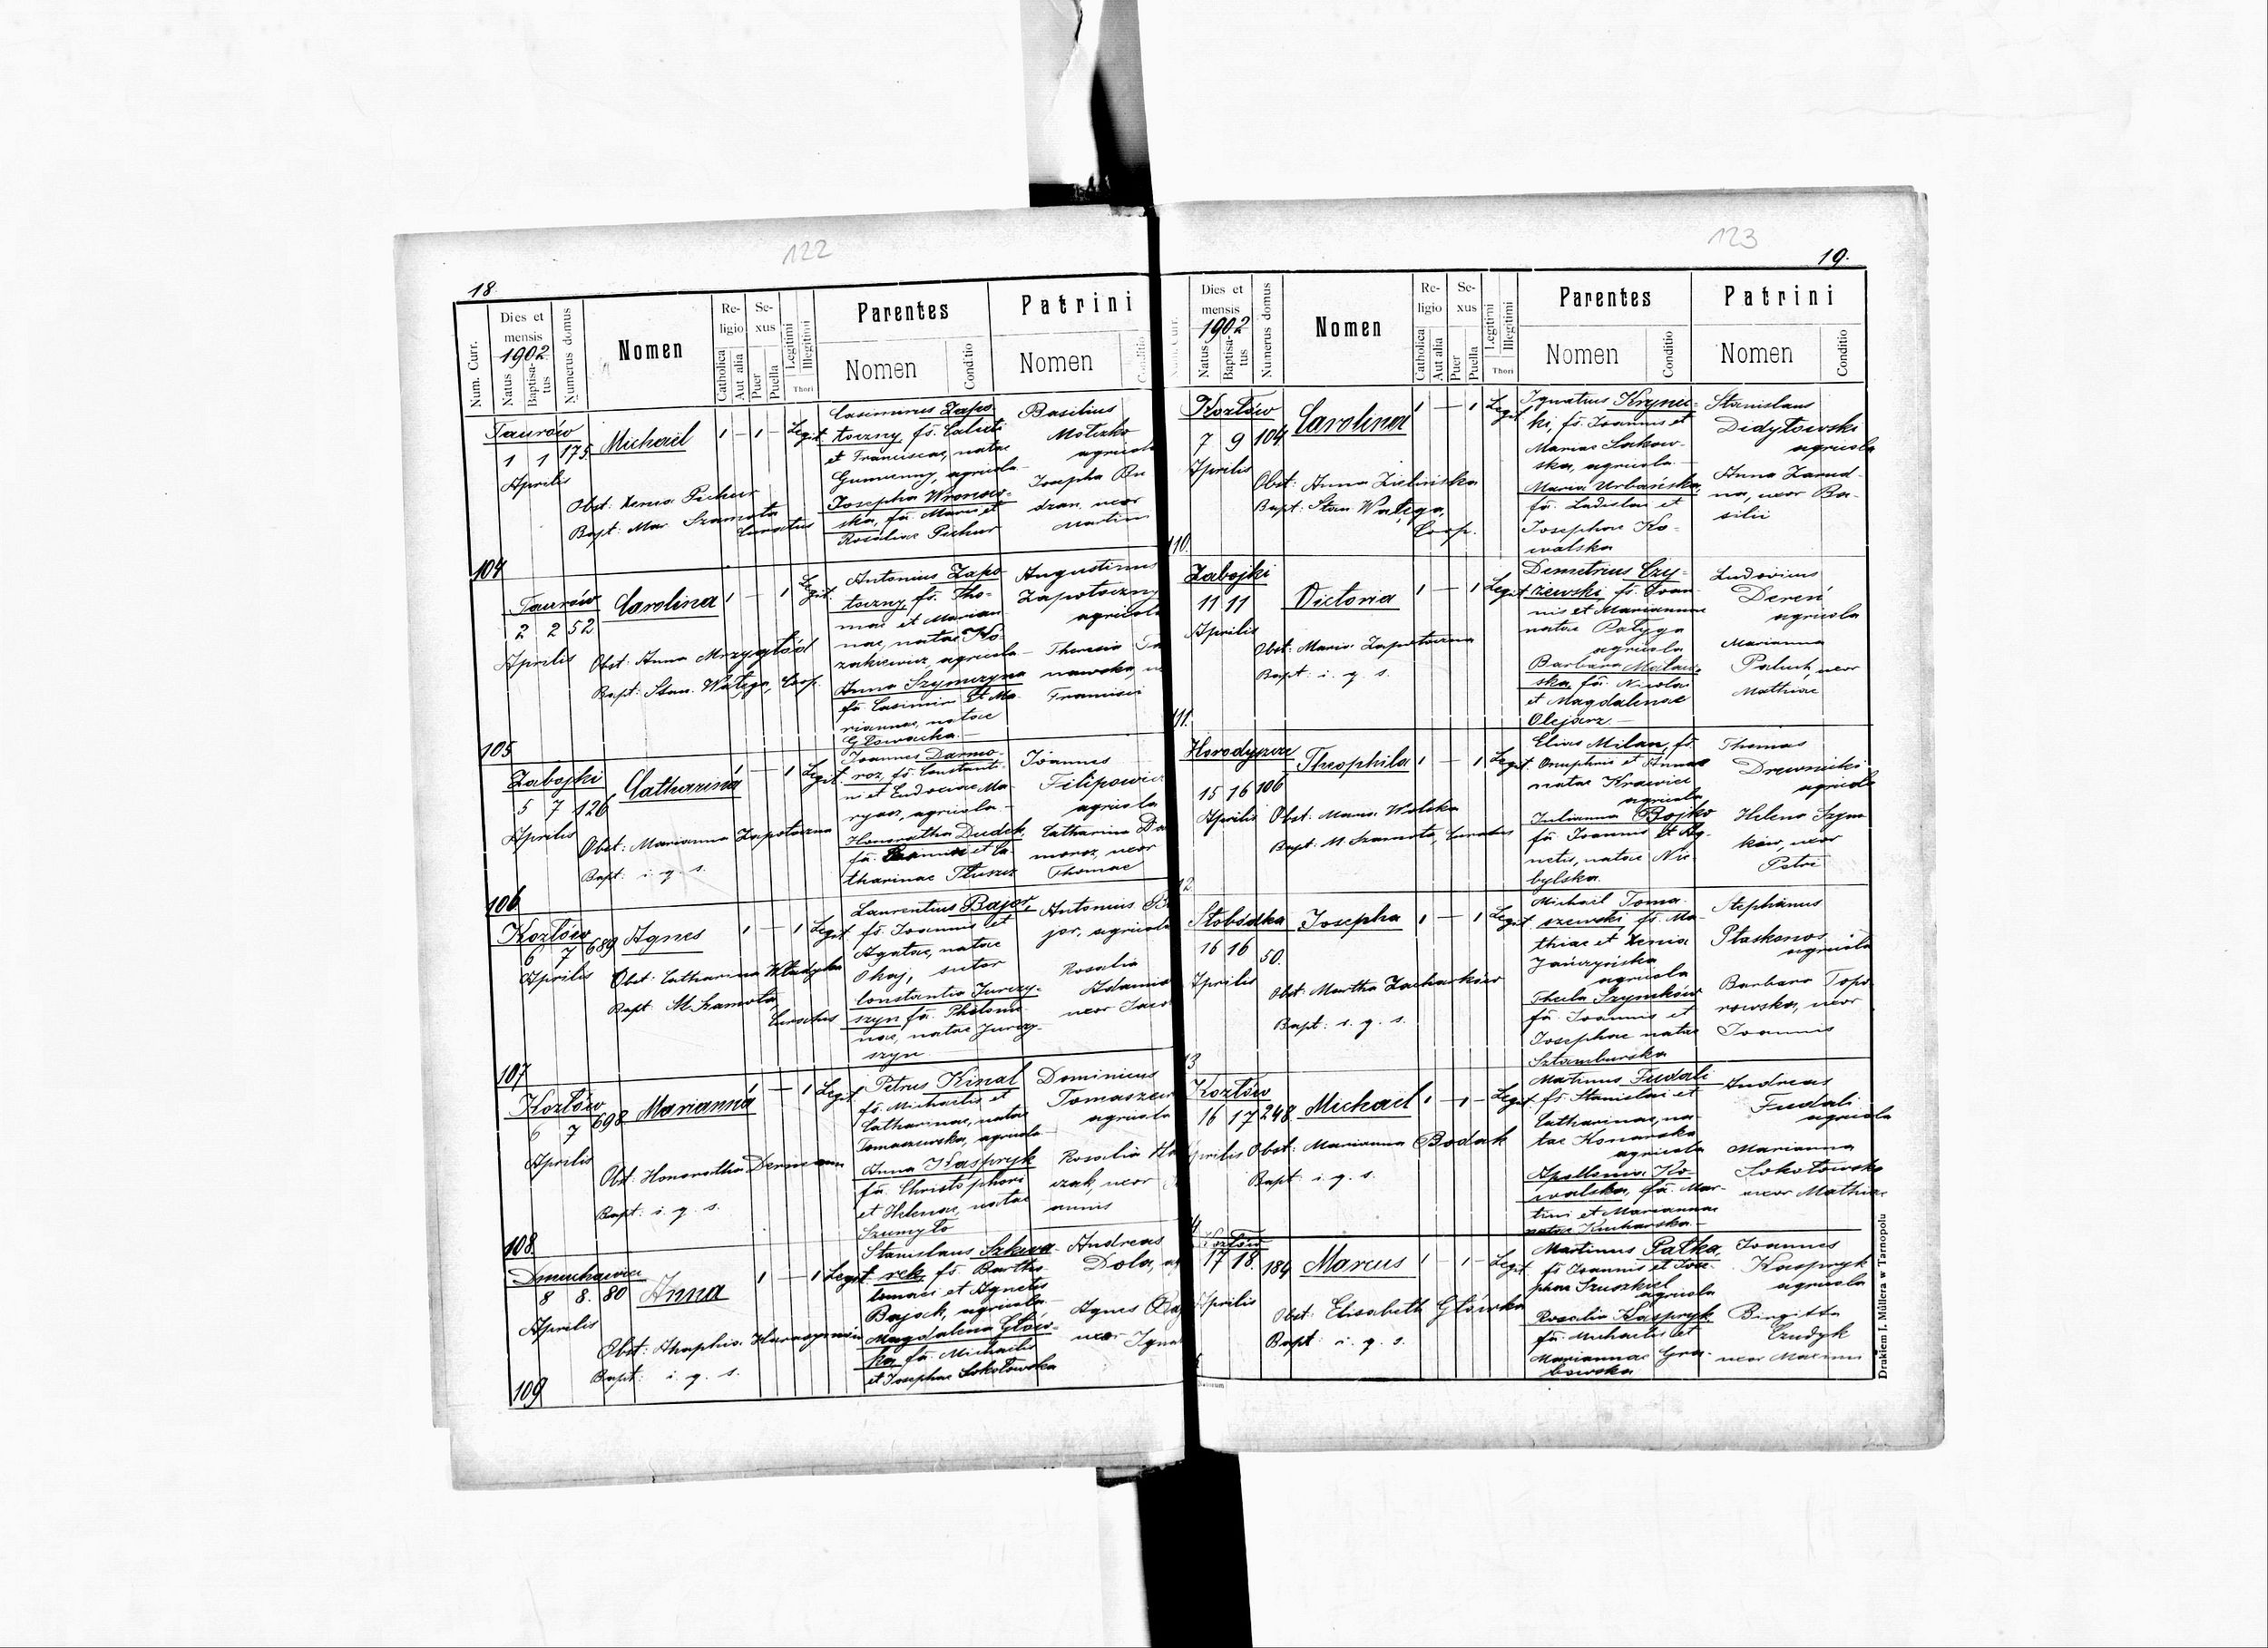 122
18.
Num. Curr.
Dies et mensis
1902
Natus
Baptisatus
Numerus domus
Nomen
Religio
Catholica
Aut alia
Sexus
Puer
Puella
Legitimi
Illegitimi
Thori
Parentes
Nomen
Conditio
Patrini
Nomen
Taurów
1 1 175
Aprilis
Michaël
1 — 1 — Legit.
Obst: Xenia Pichur
Bapt: Mar Szamota
Curatus
Casimirus Zapo-
toczny, fs. Calixti
et Franciscae, natae
Gumienny, agricola
Josepha Wronow-
ska, fa. Marci et
Rosaliae Pichur
Basilius
Motczko
agricola
Josepha Bu
dzan, uxor
Martini
104
Taurów
2 2 52
Aprilis
Carolina
1 — 1 Legit.
Obst: Anna Mrzygłód
Bapt: Stan. Wałęga, Coop.
Antonius Zapo
toczny, fs. Tho-
mae et Marian
nae, natae Ko-
zakiewicz, agricola
Anna Szymczyna
fa Casimiri et Ma-
riannae, natae
Głowacka.
Augustinus
Zapotoczny
agricola
Theresia
nawska,
Francisci
105
Zabojki
5 7 126
Aprilis
Catharina
1 — 1 Legit.
Obst: Marianna Zapotoczna
Bapt: i. q. s.
Joannes Darmo-
roz, fs. Constanti-
ni et Eudociae Ma-
ryas, agricola
Honoratha Dudek
fa. Joannis et Ca-
tharinae Tłuszcz
Joannes
Filipowicz
agricola
Catharina Da
moroz, uxor
Thomae
106
Kozłów
6 7 689
Aprilis
Agnes
1 — 1 Legit.
Obst: Catharina Władyka
Bapt: M. Szamota,
Curatus
Laurentius Bajor,
fs. Joannis et
Agatae, natae
Okaj, sutor
Constantia Jurczy-
szyn fa. Philome
nae, natae Jurczy-
szyn
Antonius B
jor, agricola
Rosalia
Adamia
uxor Jaco
107
Kozłów
6 7 698
Aprilis
Marianna
1 — 1 Legit.
Obst: Honoratha Dermann
Bapt: i. q. s.
Petrus Kinal
fs. Michaelis et
Catharinae, natae
Tomaszewska, agricola
Anna Kaspryk
fa. Christophori
et Helenae, natae
Szumyło
Dominicus
Tomaszew
agricola
Rosalia Ha
czak, uxor
annis
108
Dmuchawiec
8 8. 80
Aprilis
Anna
1 — 1 Legit.
Bapt: i. q. s.
Stanislaus Szkwa-
rek, fs. Bartho-
lomaei et Agnetis
Bajock, agricola
Magdalena Głów-
ka, fa. Michaelis
et Josephae Sokołowska
Andreas
Dola, ag
Agnes
uxor Igna
109
123
19.
Dies et mensis
1902
Natus
Baptisatus
Numerus domus
Nomen
Religio
Catholica
Aut alia
Sexus
Puer
Puella
Legitimi
Illegitimi
Thori
Parentes
Nomen
Conditio
Patrini
Nomen
Conditio
Kozłów
7 9 104
Aprilis
Carolina
1 — 1 Legit.
Obst: Anna Zielinska
Bapt: Stan Wałęga,
Coop.
Ignatius Krynic-
ki, fs. Joannis et
Mariae Sakow-
ska, agricola
Maria Urbańska,
fa. Ladislai et
Josephae Ko-
walska
Stanislaus
Didyłowski
agricola
Anna Zarud-
na, uxor Ba-
silii
110.
Zabojki
11 11
Aprilis
Victoria
1 — 1 Legit.
Obst: Maria Zapotoczna
Bapt: i. q. s.
Demetrius Czy-
żewski, fs. Joan-
nis et Mariannae
natae Patyga
agricola
Barbara Malaw-
ska, fa. Nicolai
et Magdalenae
Olejarz
Ludovicus
Dereń
agricola
Marianna
Paluch, uxor
Mathiae
111.
Horodyszcze
15 16 106
Aprilis
Theophila
1 — 1 Legit.
Obst: Maria Wolska
Bapt: M. Szamota, Curatus
Elias Milan, fs.
Onuphrii et Annae
natae Krawiec
agricola
Julianna Bojko
fa Joannis et Ag-
netis, natae Nie-
bylska.
Thomas
Drewnicki
agricola
Helena Szym
ków, uxor
Petri
12.
Słobódka
16 16 50.
Aprilis
Josepha
1 — 1 Legit.
Obst: Martha Zacharków
Bapt: i. q. s.
Michael Toma-
szewski, fs. Ma-
thiae et Xenia
agricola
Thecla Szymków
fa. Joannis et
Josephae natae
Sztamburska
Stephanus
Płaskonos
agricola
Barbara Topo
rowska, uxor
Joannis
13
Kozłów
16 17 248.
Aprilis
Michael
1 — 1 — Legit.
Obst: Marianna Bodak
Bapt: i. q. s.
Matinus Fudali
fs. Stanislai et
Catharinae, na-
tae Konarska
agricola
Apollonia Ko-
walska, fa. Mar-
tini et Mariannae
natae Kucharska.
Andreas
Fudali
agricola
Marianna
Sokołowska
uxor Mathiae
Kozłów
17 18. 184
Aprilis
Marcus
1 — 1 — Legit.
Obst: Elisabeth Główka
Bapt: i. q. s.
Martinus Pałka,
fs Joannis et Jose-
phae Szuszkiel
agricola
Rosalia Kaspryk
fa. Michaelis et
Mariannae Gra-
bowska
Joannes
Kaspryk
agricola
Birgitta
Czudyk
uxor
Drukiem J. Müllera w Tarnopolu